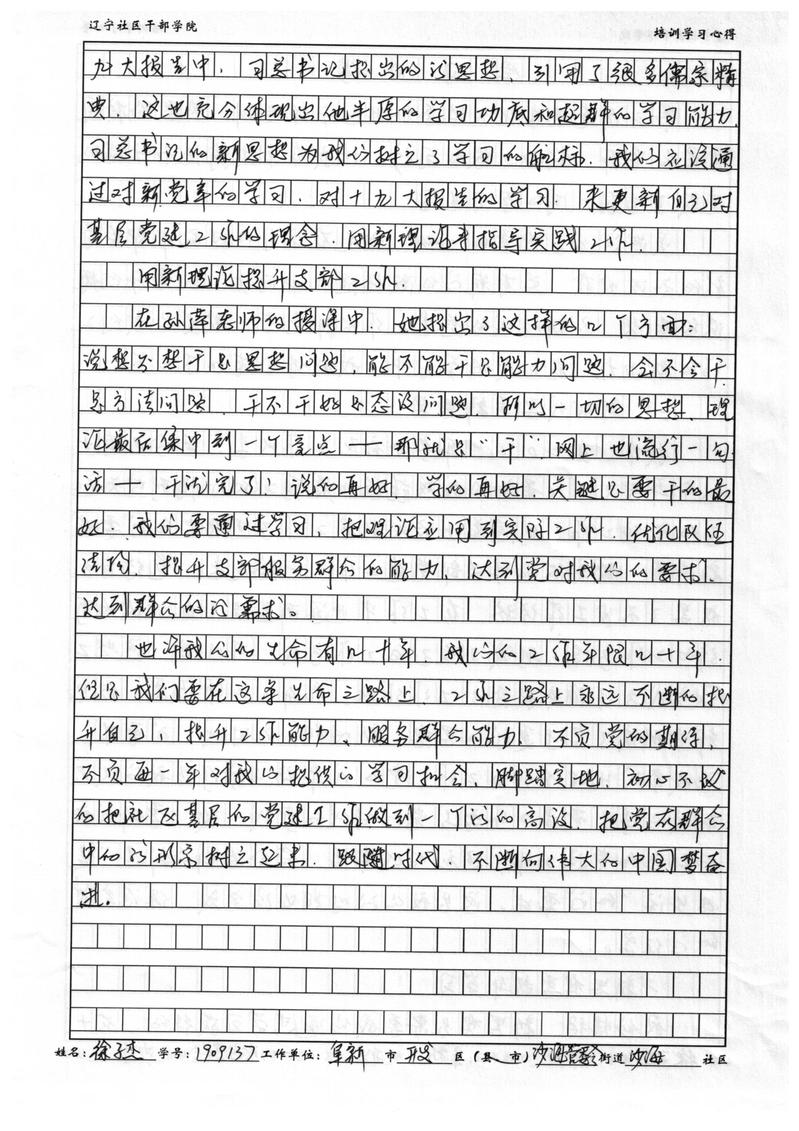 辽宁社区干部学院 培训学习心得
九大报告中,习总书记提出的新思想,引用了很多儒家精
典,这也充分体现出他丰厚的学习功底和超群的学习能力
习总书记的新思想为我们树立了学习的航标,我们应该通
过对新党章的学习,对十九大报告的学习,来更新自己对
基层党建工作的理念,用新理论来指导实践工作
用新理论提升支部工作.
在孙萍老师的授课中,她指出了这样的几个方面:
说想不想干是思想问题,能不能干是能力问题,会不会干
是方法问题,干不干好是态度问题,所以一切的思想、理
论最后集中到一个亮点——那就是“干”网上也流行一句
话——干就完了!说的再好,学的再好,关键是要干的最
好.我们要通过学习,把理论应用到实际工作,优化队伍
结构,提升支部服务群众的能力,达到党对我们的要求,
达到群众的新要求.
也许我们的生命有几十年,我们的工作年限几十年,
但是我们要在这条生命之路上,工作之路上永远不断的提
升自己,提升工作能力、服务群众能力,不负党的期待,
不负每一年对我们提供的学习机会,脚踏实地,初心不改
的把社区基层的党建工作做到一个新的高度,把党在群众
中的新形象树立起来,跟随时代,不断向伟大的中国梦奋
进.
姓名:徐子杰 学号:1909137 工作单位:阜新 市 开发 区(县、市)沙海 街道 沙海 社区